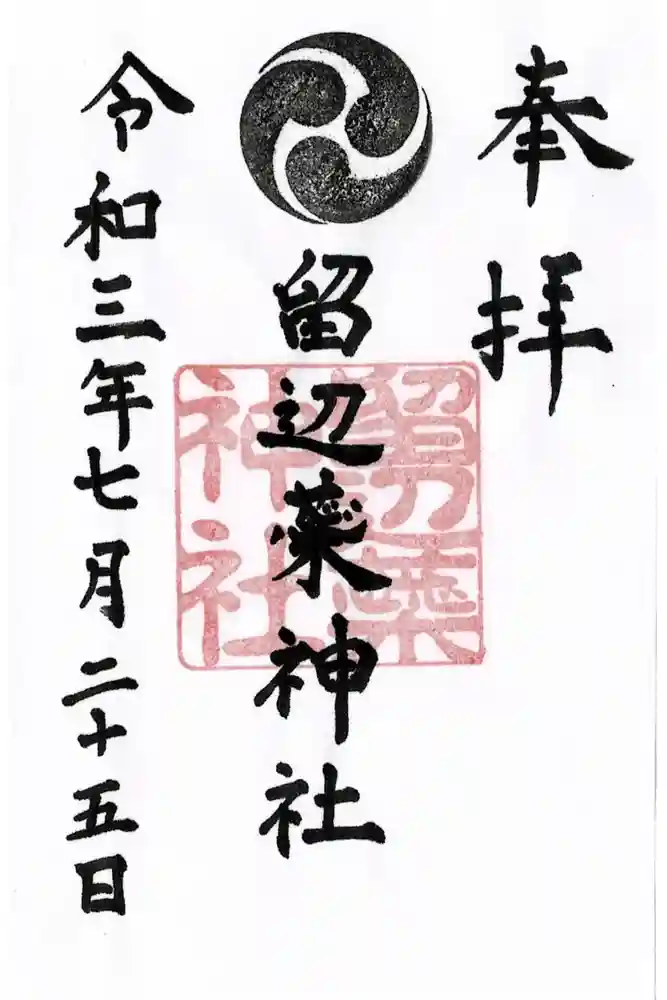 奉拝
留辺蘂神社
令和三年七月二十五日
留辺蘂
神社